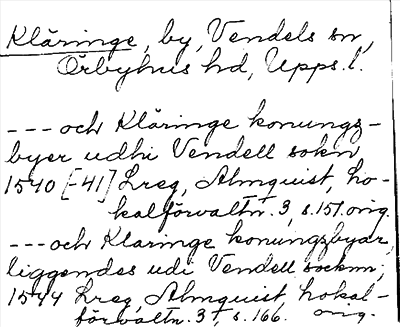 Kläringe, by, Vendels sn,
Örbyhus hd, Upps. l.
--- och Kläringe konungz-
byer udhi Vendell sokn,
1540 [-41] Lreg, Almquist, Lo-
kalförvaltn. 3, s. 151. orig.
--- och Klaringe konungzbyar,
liggendes udi Vendell socknn;
1544 Lreg, Almquist, Lokal-
förvaltn. 3, s. 166. orig.